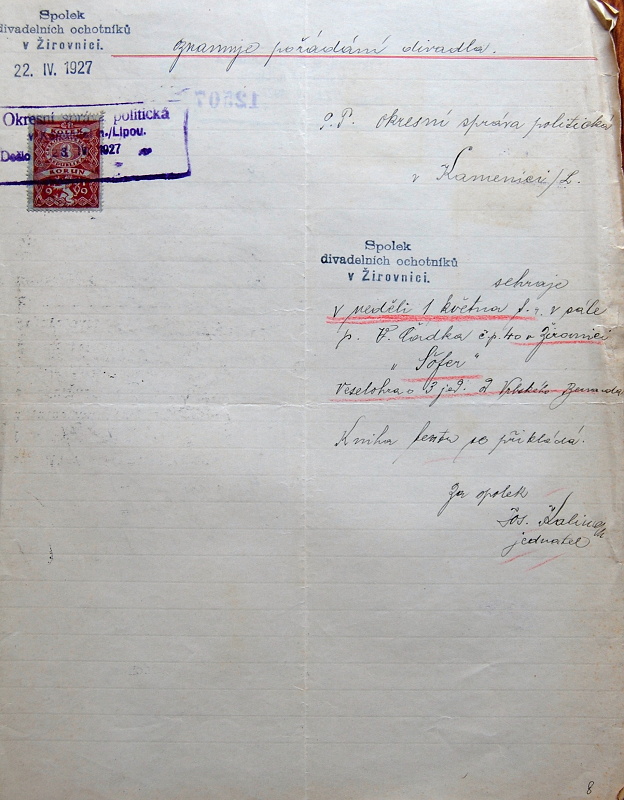 Spolek
divadelních ochotníků
v Žirovnici.
22. IV. 1927
oznamuje pořádání divadla.
12507
Okresní správa politická
n./Lipou.
Došlo 1927
KOLEK
KORUN
P.T. Okresní správa politická
v Kamenici/L.
Spolek
divadelních ochotníků
v Žirovnici.
sehraje
v neděli 1 května t.r. v sále
p. č.p. 40 v Žirovnici
„Šofer"
Veselohra o 3 jed.
Kniha textu se přikládá.
Za spolek
Jos. Kalina
jednatel
8